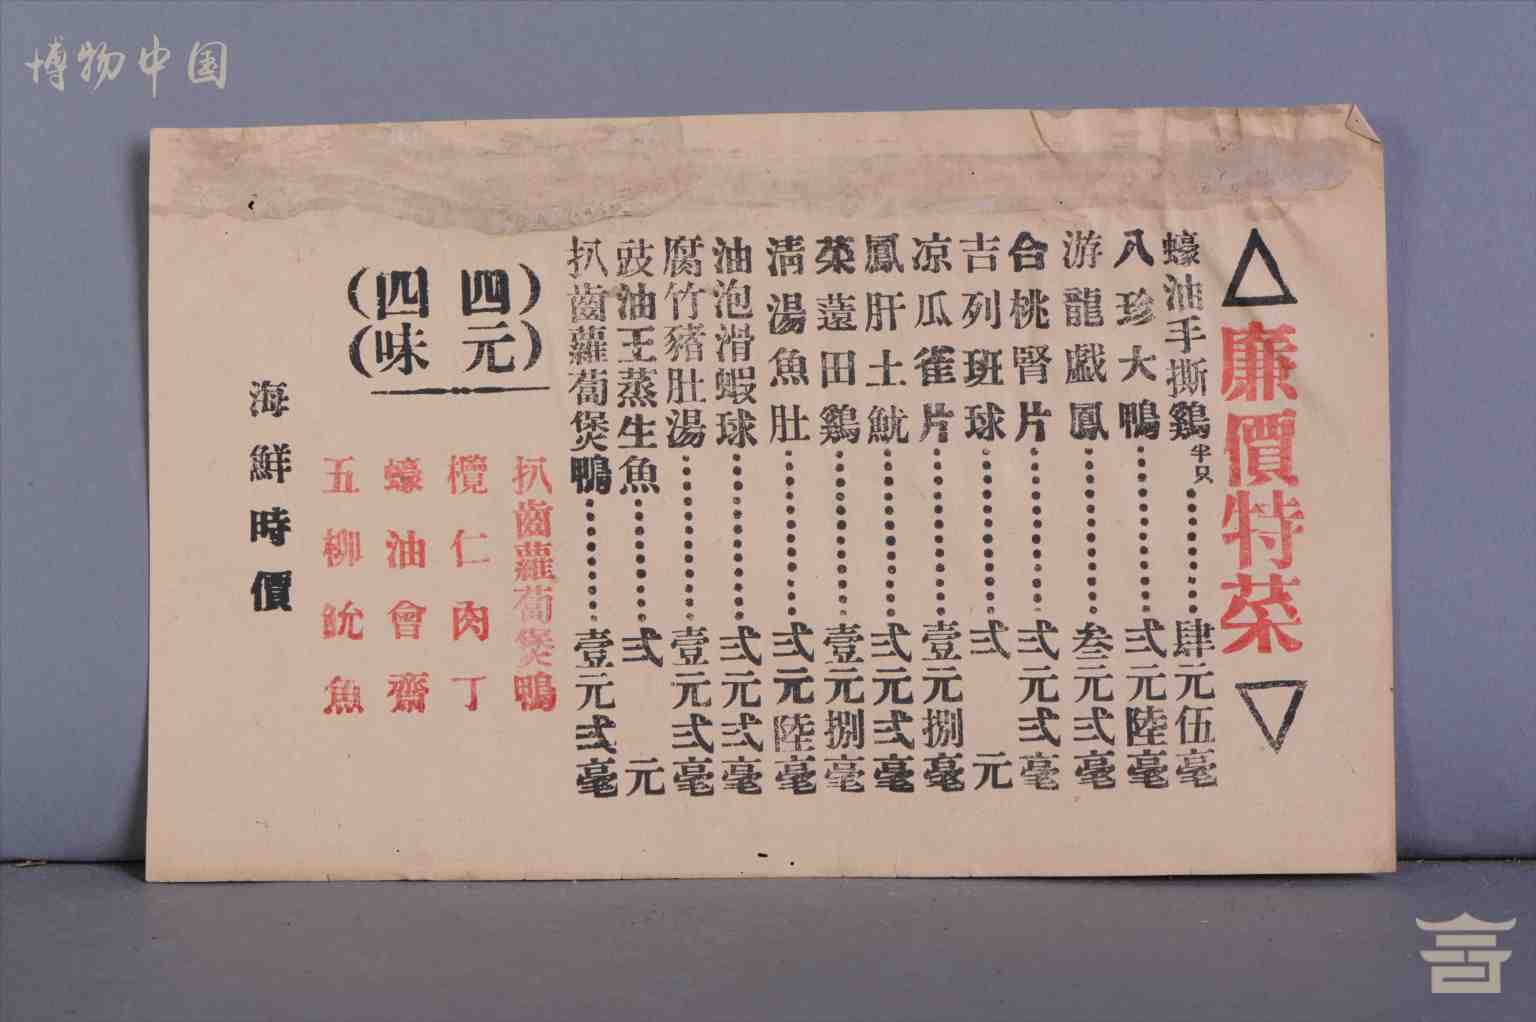 博物中国
廉價特菜
蠔油手撕鷄半只……肆元伍毫
八珍大鴨……弍元陸毫
游龍戯鳳……叁元弍毫
合桃腎片……弍元弍毫
吉列班球……弍元
凉瓜雀片……壹元捌毫
鳳肝土魷……弍元弍毫
菜薳田鷄……壹元捌毫
清湯魚肚……弍元陸毫
油泡滑蝦球……弍元弍毫
腐竹豬肚湯……壹元弍毫
豉油王蒸生魚……弍元
扒齒蘿蔔煲鴨……壹元弍毫
(四元)
(四味)
扒齒蘿蔔煲鴨
欖仁肉丁
蠔油會齋
五柳鯇魚
海鮮時價